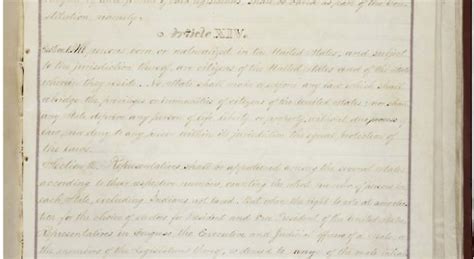 stitution, namely:
Article XIV.
Section 1. All persons born or naturalized in the United States, and subject
to the jurisdiction thereof, are citizens of the United States and of the State
wherein they reside. No State shall make or enforce any law which shall
abridge the privileges or immunities of citizens of the United States; nor shall
any State deprive any person of life, liberty, or property, without due process of
law; nor deny to any person within its jurisdiction the equal protection of
the laws.
Section 2. Representatives shall be apportioned among the several States
according to their respective numbers, counting the whole number of persons in
each State, excluding Indians not taxed. But when the right to vote at any elec-
tion for the choice of electors for President and Vice President of the United States,
Representatives in Congress, the Executive and Judicial officers of a State, or
the members of the Legislature thereof, is denied to any of the male inhabi